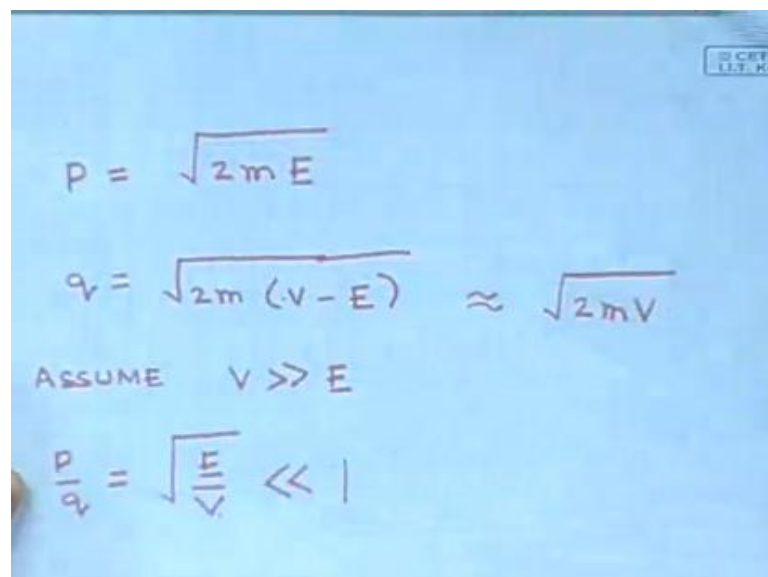 © CET
I.I.T. K
P = √2mE
q = √2m (V - E) ≈ √2mV
ASSUME V >> E
P/q = √E/V << 1